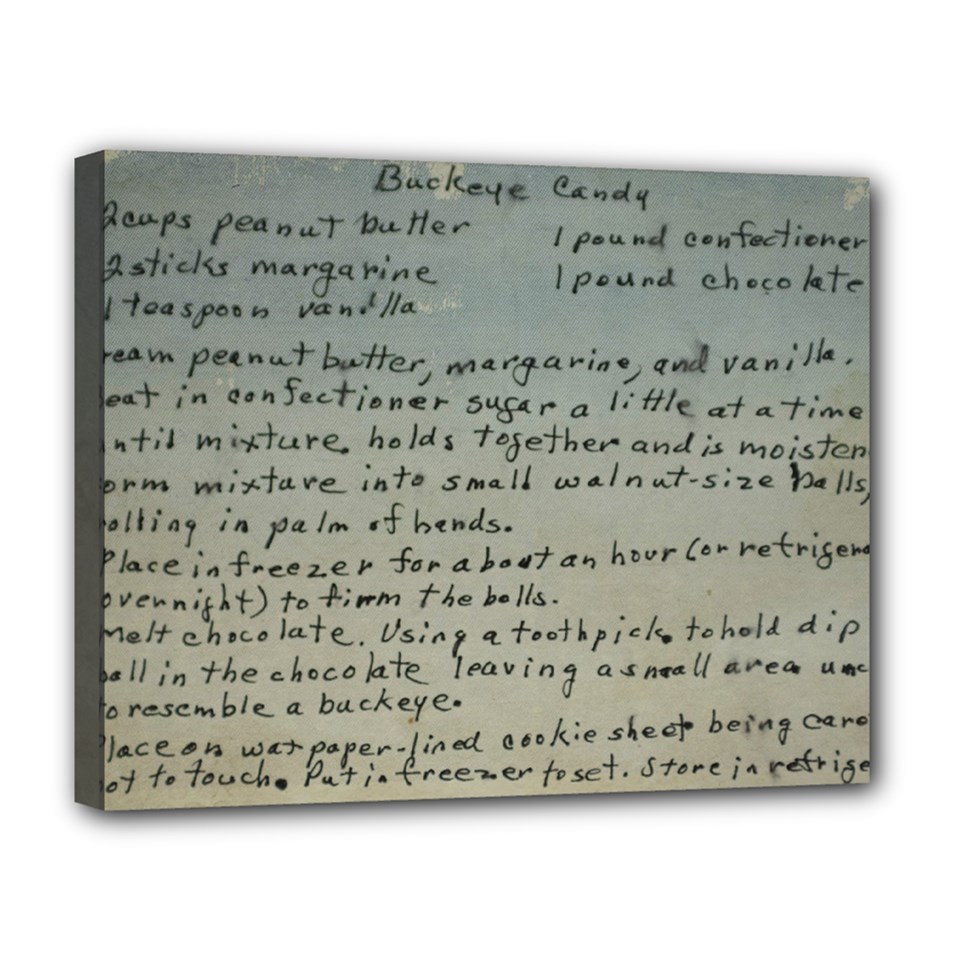 Buckeye Candy
2 cups peanut butter
1 pound confectioner
2 sticks margarine
1 pound chocolate
1 teaspoon vanilla
ream peanut butter, margarine, and vanilla.
eat in confectioner sugar a little at a time
ntil mixture holds together and is moisten
orm mixture into small walnut-size balls,
olling in palm of hands.
Place in freezer for about an hour (or refrigera
overnight) to firm the balls.
Melt chocolate. Using a toothpick to hold dip
ball in the chocolate leaving a small area unc
to resemble a buckeye.
Place on wax paper-lined cookie sheet being care
ot to touch. Put in freezer to set. Store in refrige